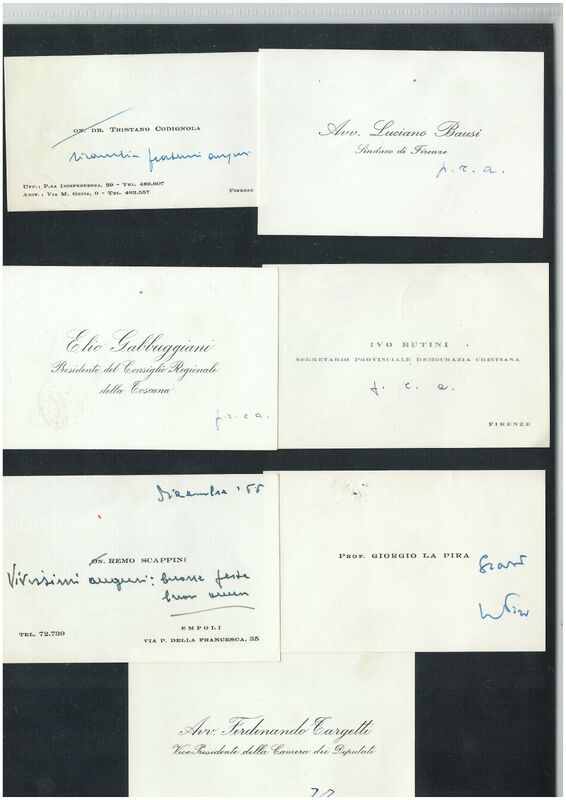 ON. DR. TRISTANO CODIGNOLA
ricambia fraterni auguri
UFF.: P.ZA INDIPENDENZA, 29 - TEL. 489.607
ABIT.: VIA M. GIOIA, 9 - TEL. 483.557
FIRENZE
Avv. Luciano Bausi
Sindaco di Firenze
p. r. a.
Elio Gabbuggiani
Presidente del Consiglio Regionale
della Toscana
p. r. e a.
IVO BUTINI
SEGRETARIO PROVINCIALE DEMOCRAZIA CRISTIANA
p. r. a.
FIRENZE
Dicembre '55
ON. REMO SCAPPINI
Vivissimi auguri: buone feste
buon anno
EMPOLI
TEL. 72.739
VIA P. DELLA FRANCESCA, 35
PROF. GIORGIO LA PIRA
Avv. Ferdinando Targetti
Vice Presidente della Camera dei Deputati